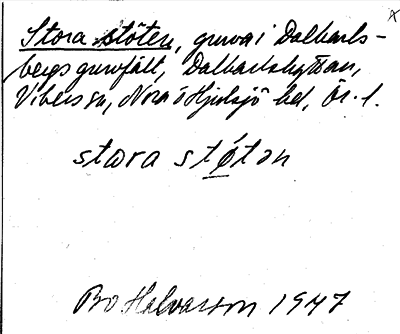 x
Stora stöten, gruva i Dalkarls-
bergs gruvfält, Dalkarlshyttan,
Vikers sn, Nora o Hjulsjö bd, Ör. l.
stora støtən
Bo Halvarson 1947